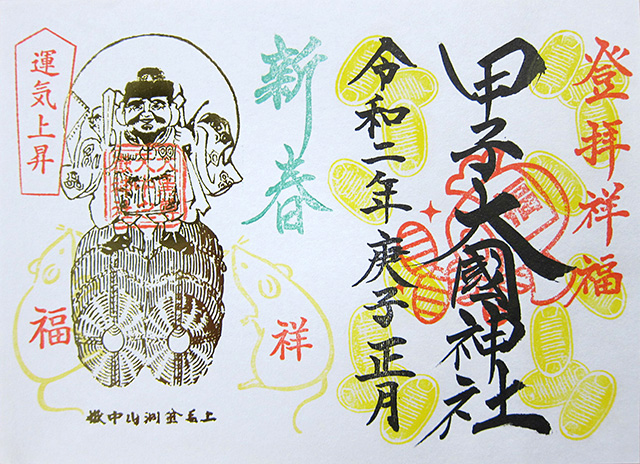 登拝祥福
甲子大國神社
令和二年庚子正月
新春
祥
運気上昇
福
上毛金洞山中嶽